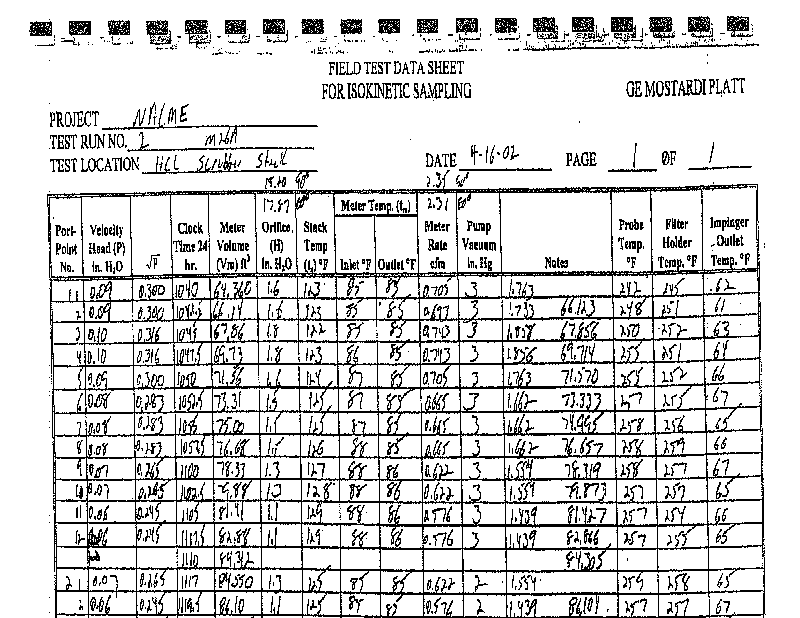 FIELD TEST DATA SHEET
FOR ISOKINETIC SAMPLING
GE MOSTARDI PLATT
PROJECT NALME
TEST RUN NO. 2 M26A
TEST LOCATION HCL Scrubber Stack
DATE 4-16-02 PAGE 1 OF 1
Port-Point No. Velocity Head (P) in. H₂O √P Clock Time 24 hr. Meter Volume (Vm) ft³ Orifice, (H) in. H₂O Stack Temp (tₛ) °F Meter Temp. (tₘ) Inlet °F Outlet °F Meter Rate cfm Pump Vacuum in. Hg Notes Probe Temp. °F Filter Holder Temp. °F Impinger Outlet Temp. °F
1 1 0.09 0.300 1040 64.360 1.6 123 85 85 0.705 3 1.763 242 245 62
2 0.09 0.300 1042.5 66.14 1.6 123 85 85 3 66.123 248 251 61
3 0.10 0.316 1045 67.86 1.8 122 85 85 0.743 3 1.858 67.856 250 252 63
4 0.10 0.316 1047.5 69.73 1.8 123 86 85 0.743 3 69.714 255 251 64
5 0.09 0.300 1050 1.6 124 87 85 0.705 3 1.763 71.570 252 66
6 0.08 0.283 1052.5 73.31 1.5 125 87 85 0.665 3 1.662 73.333 257 255 67
7 0.08 0.283 1055 75.00 1.5 125 87 85 0.665 3 1.662 74.995 258 256 65
8 0.08 0.283 1057.5 76.68 1.5 126 88 85 0.665 3 1.662 76.657 258 259 66
9 0.07 0.265 1100 78.33 1.3 127 88 86 0.622 3 1.554 78.319 258 257 67
10 0.07 0.265 1102.5 79.88 1.3 128 88 86 0.622 3 1.554 79.873 257 257 65
11 0.06 0.245 1105 81.41 1.1 129 88 86 0.576 3 1.439 81.427 257 254 66
12 0.06 0.245 1107.5 82.88 1.1 129 88 86 0.576 3 1.439 82.866 257 255 65
1110 84.312 84.305
2 1 0.07 0.265 1117 84.550 1.3 125 85 85 0.622 2 1.554 259 258 65
2 0.06 0.245 1119.5 86.10 1.1 125 85 0.576 2 1.439 86.101 257 257 67